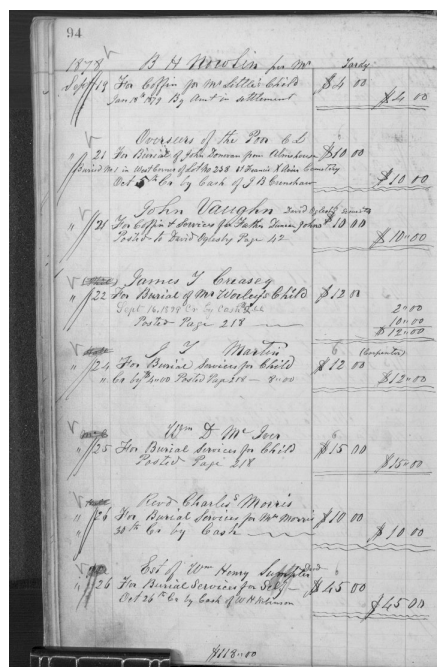 94
1878 B H Nowlin for Mr Tardy
Sept 19 For Coffin for Mr Little's Child $4 00
Jan 18th 1879 By Amt in settlement $4 00
Overseers of the Poor C L
" 21 For Burial of John Donovan from Almshouse $10 00
Buried No 1 in West Corner of Lot No 238 St Francis X Cemetery
Oct 5th Cr by Cash of J B Crenshaw $10 00
John Vaughn David Oglesby
" 21 For Coffin & Services for Father $10 00
Posted to David Oglesby Page 42 $10 00
James T Creasey
" 22 For Burial of Mr Worley's Child $12 00
Sept 16 1878 Cr by Cash 2 00
Posted Page 218 10 00
$12 00
J T Martin (Carpenter)
" 24 For Burial Services for Child $12 00
" Cr by 4 00 Posted Page 218 — 8 00 $12 00
Wm D McIver
" 25 For Burial Services for Child $15 00
Posted Page 218 $15 00
Revd Charles Morris
" 26 For Burial Services for Mr Morris $10 00
" 30th Cr by Cash $10 00
Est of Wm Henry Decd
" 26 For Burial Services for Self — $45 00
Oct 26th Cr by Cash of W H $45 00
$118 00